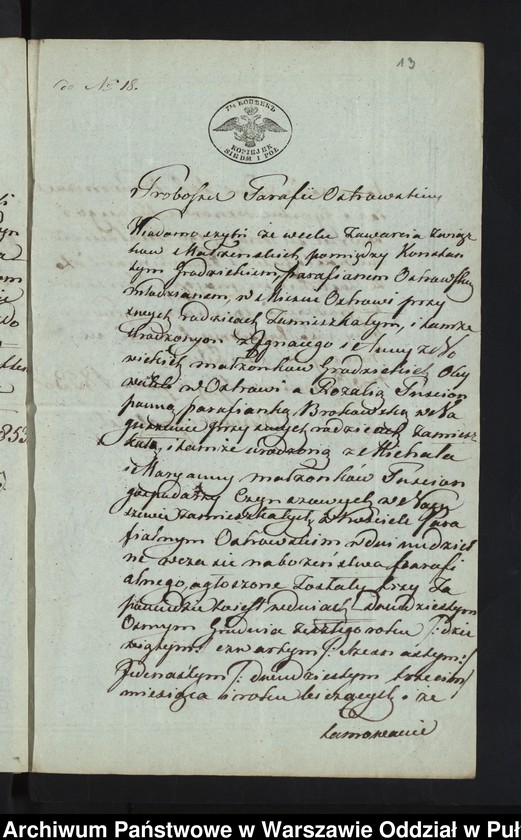 13
do No 18.
7½ КОПѢЕКЪ
KOPIEJEK
SIEDM I PÓŁ
Proboszcz Parafii Ostrowskiey
Wiadomo czyni że wcelu Zawarcia Związ
ków Małżeńskich pomiędzy Konstan
tym Grodzickiem, parafianem Ostrowskim
młodzianem, w Mieście Ostrowi przy
swych rodzicach Zamieszkałym, i tamże
Urodzonym z Ignacego i
małżonków Grodzickich Oby
wateli w Ostrowi a Rozalią Tuscion
panną, parafianką Brokowską, w
przy swych rodzicach Zamiesz
kałą, i tamże urodzoną z Michała
i Maryanny małżonków Tuscion
gospodarzy Czynszowych, w
Zamieszkałych, w Kościele Para
fialnym Ostrowskim w dni niedziel
ne w czasie nabożeństwa Parafi
alnego, ogłoszone Zostały trzy Za
powiedzie to iest w dniach dwudziestym
Osmym Grudnia Zeszłego roku
czwartym
Jedenastym /: dwudziestym trzecim/
miesiąca i roku bieżących, i że
tamowanie
Archiwum Państwowe w Warszawie Oddział w Puł